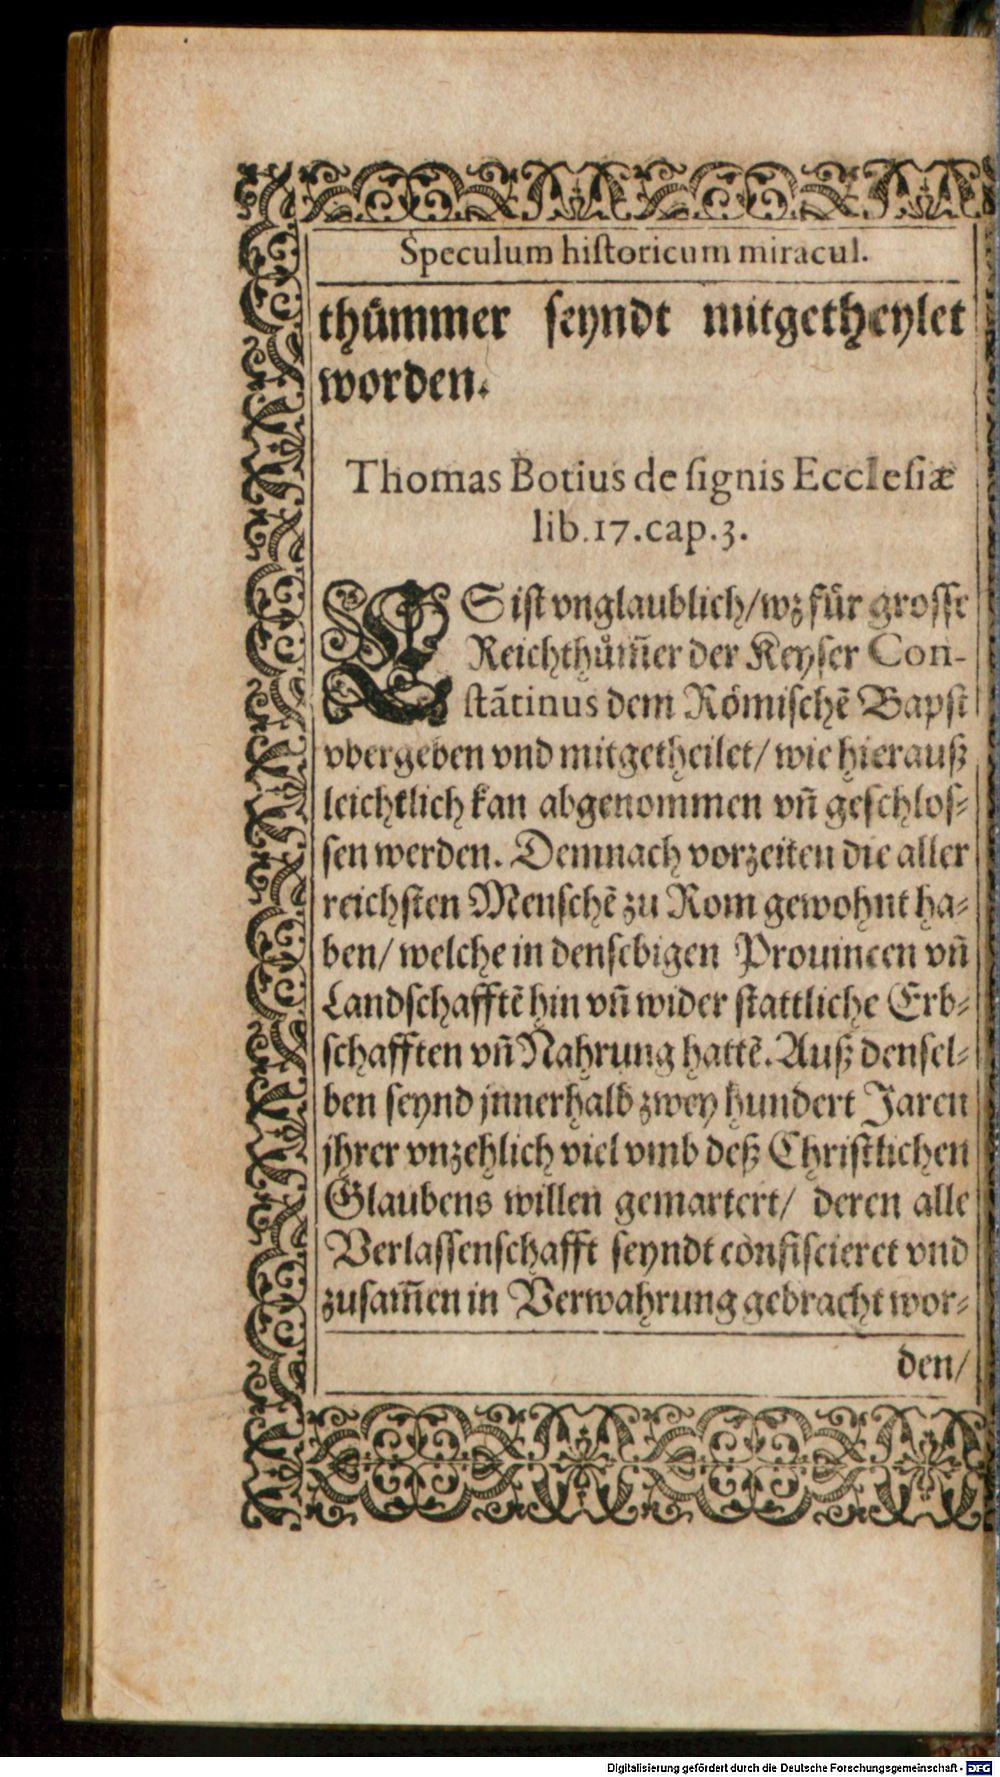 Speculum historicum miracul.
thuͤmmer seyndt mitgetheylet
worden.
Thomas Botius de signis Ecclesiæ
lib.17.cap.3.
ES ist vnglaublich/wz fuͤr grosse
Reichthuͤm̃er der Keyser Con-
stãtinus dem Roͤmischẽ Bapst
vbergeben vnd mitgetheilet/ wie hierauß
leichtlich kan abgenommen vñ geschlos-
sen werden. Demnach vorzeiten die aller
reichsten Menschẽ zu Rom gewohnt ha-
ben/ welche in densebigen Prouincen vñ
Landschafftẽ hin vñ wider stattliche Erb-
schafften vñ Nahrung hattẽ. Auß densel-
ben seynd jnnerhalb zwey hundert Jaren
jhrer vnzehlich viel vmb deß Christlichen
Glaubens willen gemartert/ deren alle
Verlassenschafft seyndt confiscieret vnd
zusam̃en in Verwahrung gebracht wor-
den/
Digitalisierung gefördert durch die Deutsche Forschungsgemeinschaft - DFG